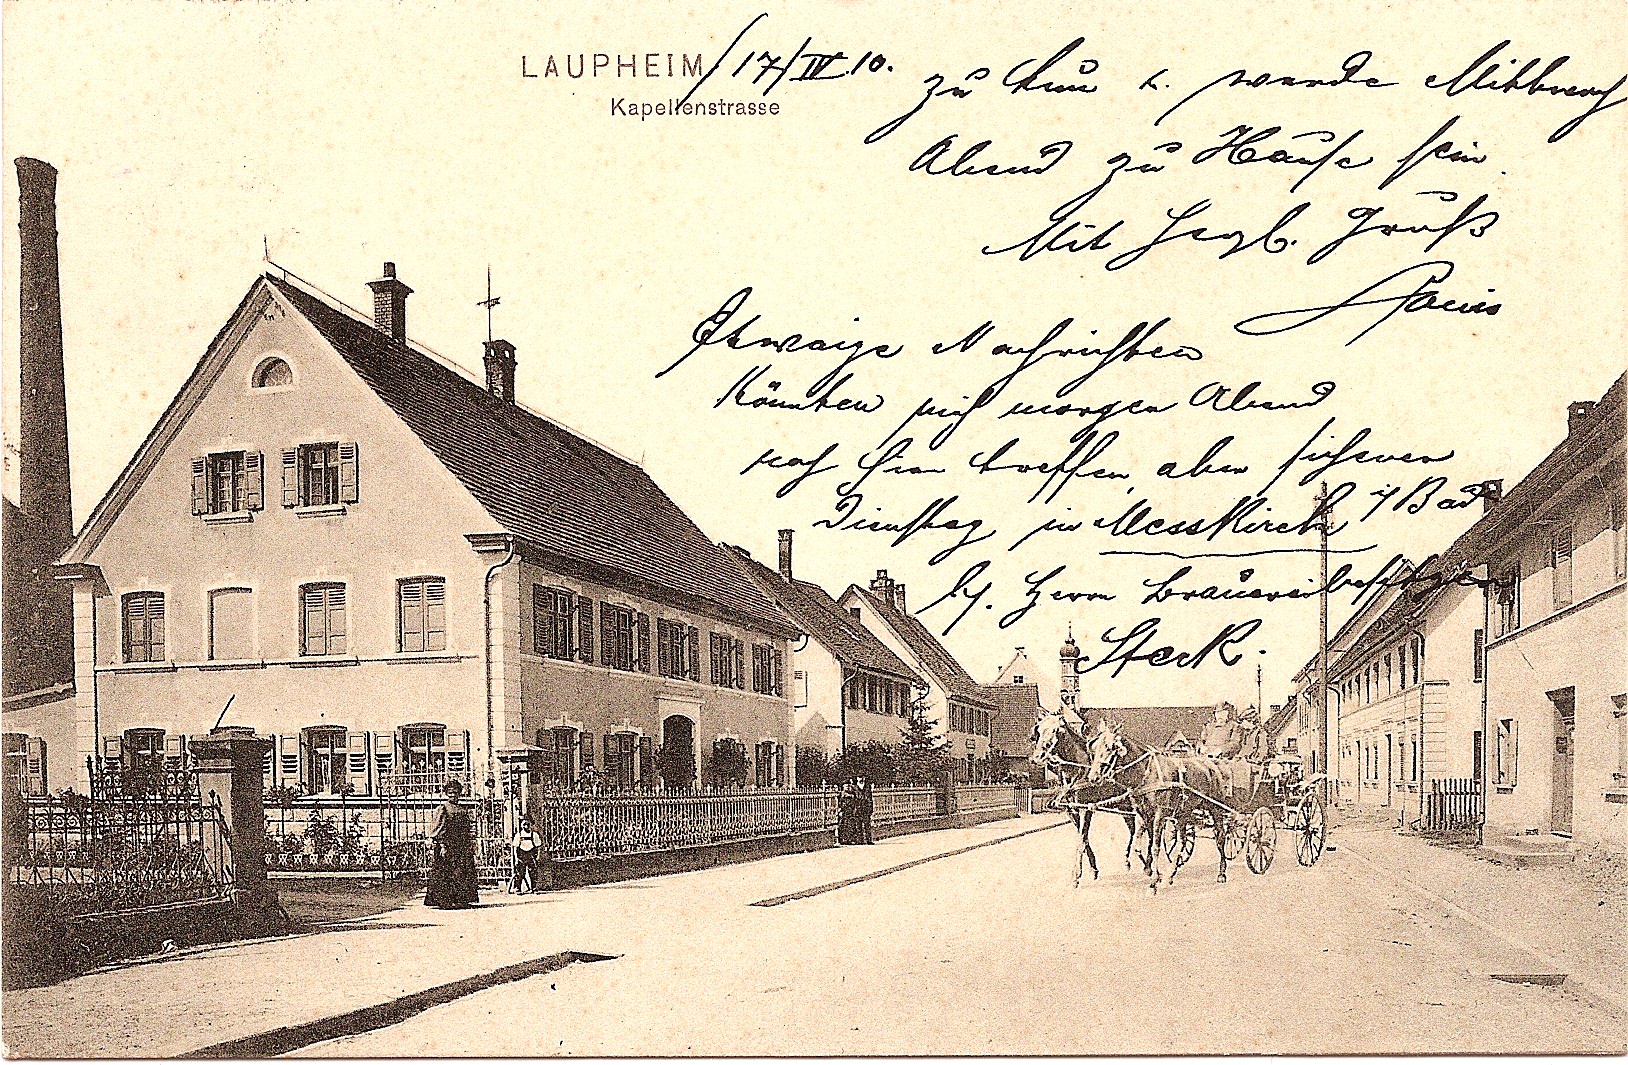 LAUPHEIM / 17/IV.10.
Kapellenstrasse
zu tun u. werde Mittwoch
Abend zu Hause sein.
Mit Hrzl. Gruß
Louis
Etwaige Nachrichten
könnten mich morgen Abend
noch hier treffen, aber sicherer
Dienstag in Messkirch i/Bad
bei Herrn Brauereibesitzer
Steck.